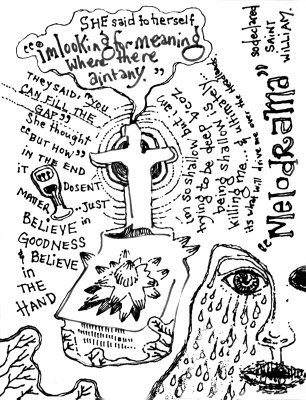 SHE said to herself
"I'm looking for meaning
where there
aintany."
They said: "you
CAN FILL THE
GAP"
She thought
"BUT HOW"
IN THE END
IT DOSENT
MATTER JUST
BELIEVE in
GOODNESS
& BELIEVE
in
THE
HAND
but am
im so shallow & coz
trying to be deep
being shallow is
killing me. & ultimately
its what will drive me over the
"Melodrama"
so declared
SAINT
WILLIAM.